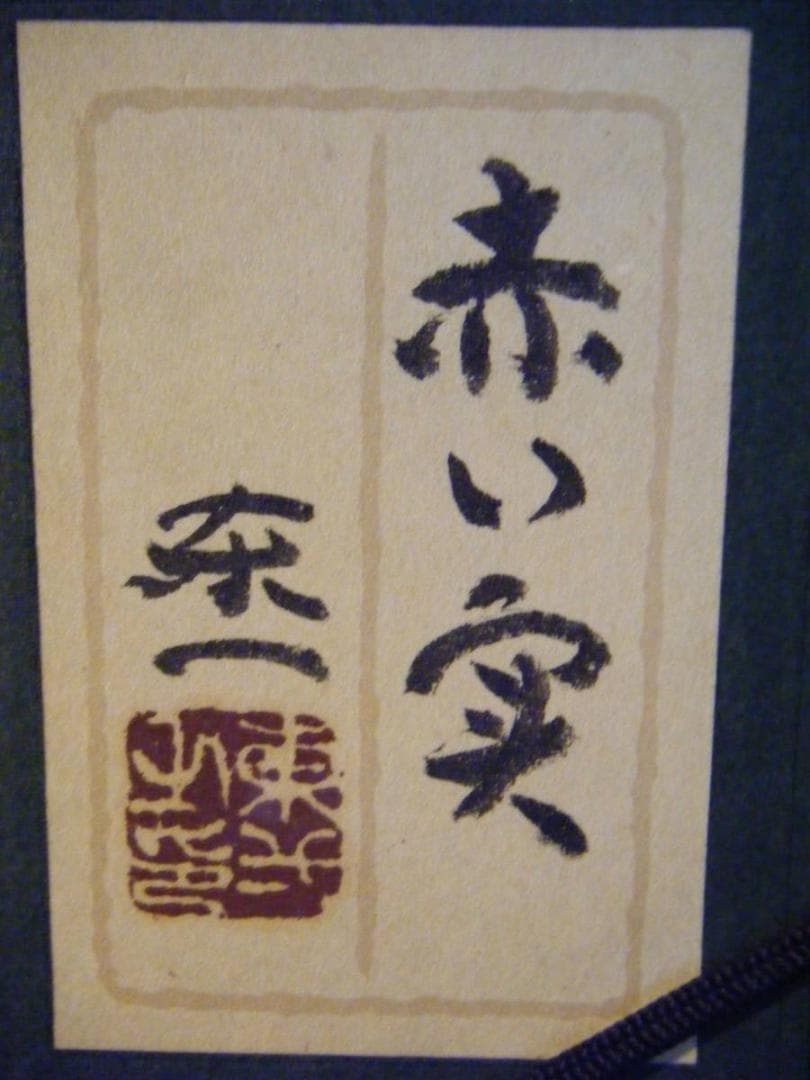 赤い実
東一